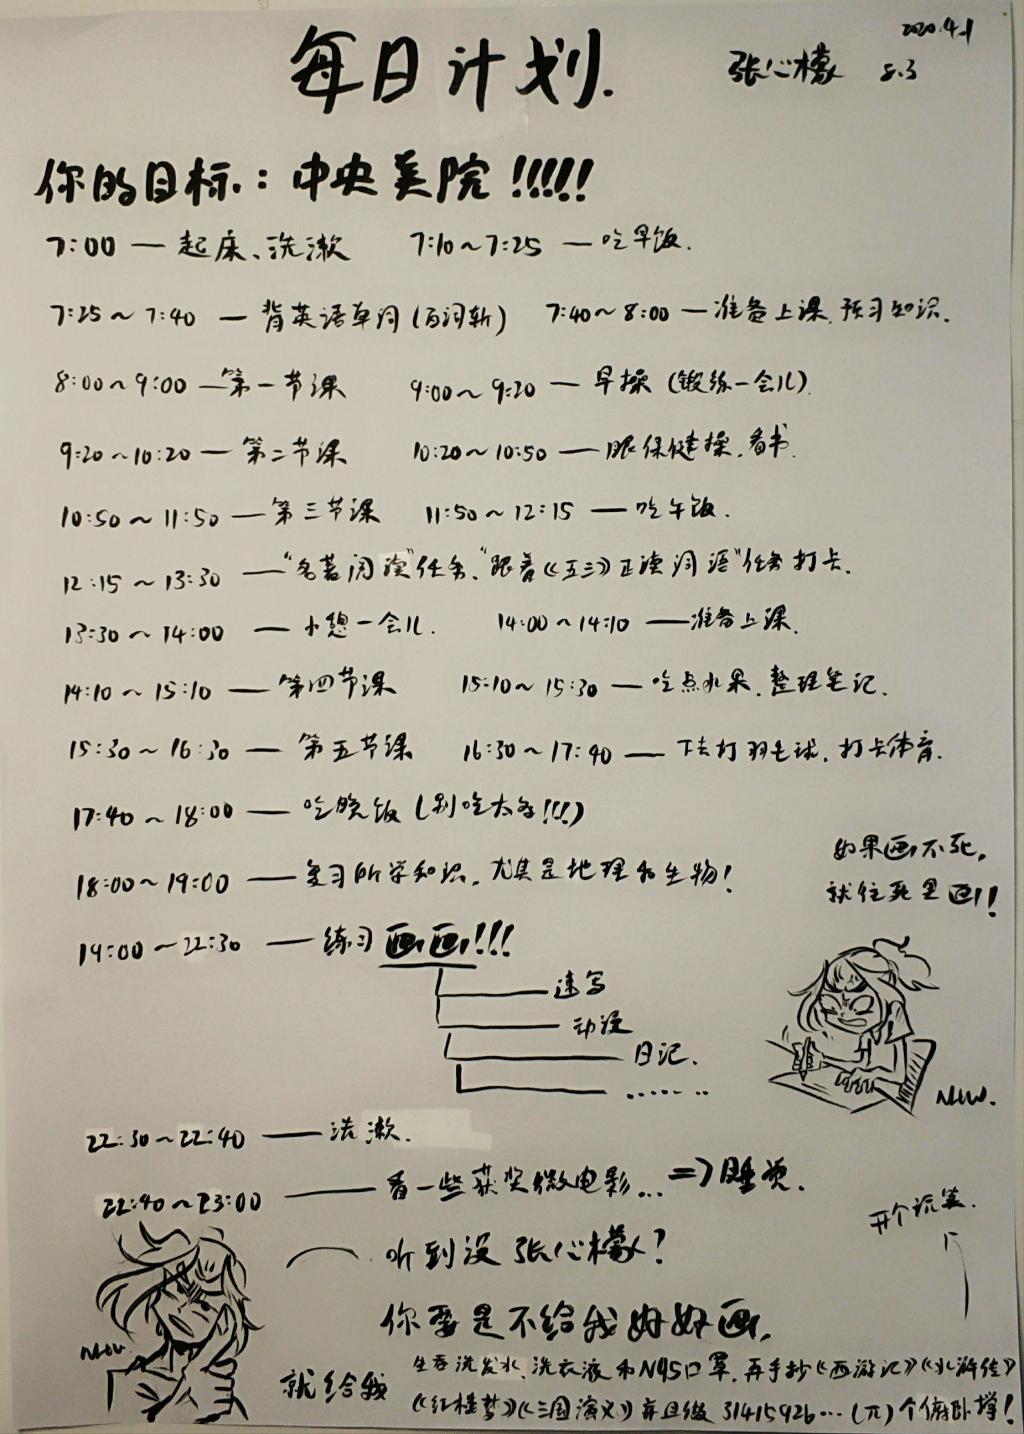 2020.4.1
每日计划.
张心檬 8.3
你的目标:中央美院!!!!!
7:00 — 起床、洗漱 7:10~7:25 — 吃早饭.
7:25~7:40 — 背英语单词(百词斩) 7:40~8:00 — 准备上课.预习知识.
8:00~9:00 — 第一节课 9:00~9:20 — 早操(锻练一会儿).
9:20~10:20 — 第二节课 10:20~10:50 — 眼保健操.看书.
10:50~11:50 — 第三节课 11:50~12:15 — 吃午饭.
12:15~13:30 — “名著阅读”任务.“跟着《五三》正读词语”任务打卡.
13:30~14:00 — 小憩一会儿. 14:00~14:10 — 准备上课.
14:10~15:10 — 第四节课 15:10~15:30 — 吃点水果.整理笔记.
15:30~16:30 — 第五节课 16:30~17:40 — 下去打羽毛球.打卡体育.
17:40~18:00 — 吃晚饭(别吃太多!!!)
18:00~19:00 — 复习所学知识.尤其是地理和生物!
如果画不死,
就往死里画!
19:00~22:30 — 练习画画!!!
速写
动漫
日记.
........
New.
22:30~22:40 — 洗漱.
22:40~23:00 — 看一些获奖微电影... => 睡觉.
开个玩笑.
听到没 张心檬?
你要是不给我好好画,
New.
就给我 生吞洗发水、洗衣液和N95口罩.再手抄《西游记》《水浒传》
《红楼梦》《三国演义》并且做 31415926...(π)个俯卧撑!